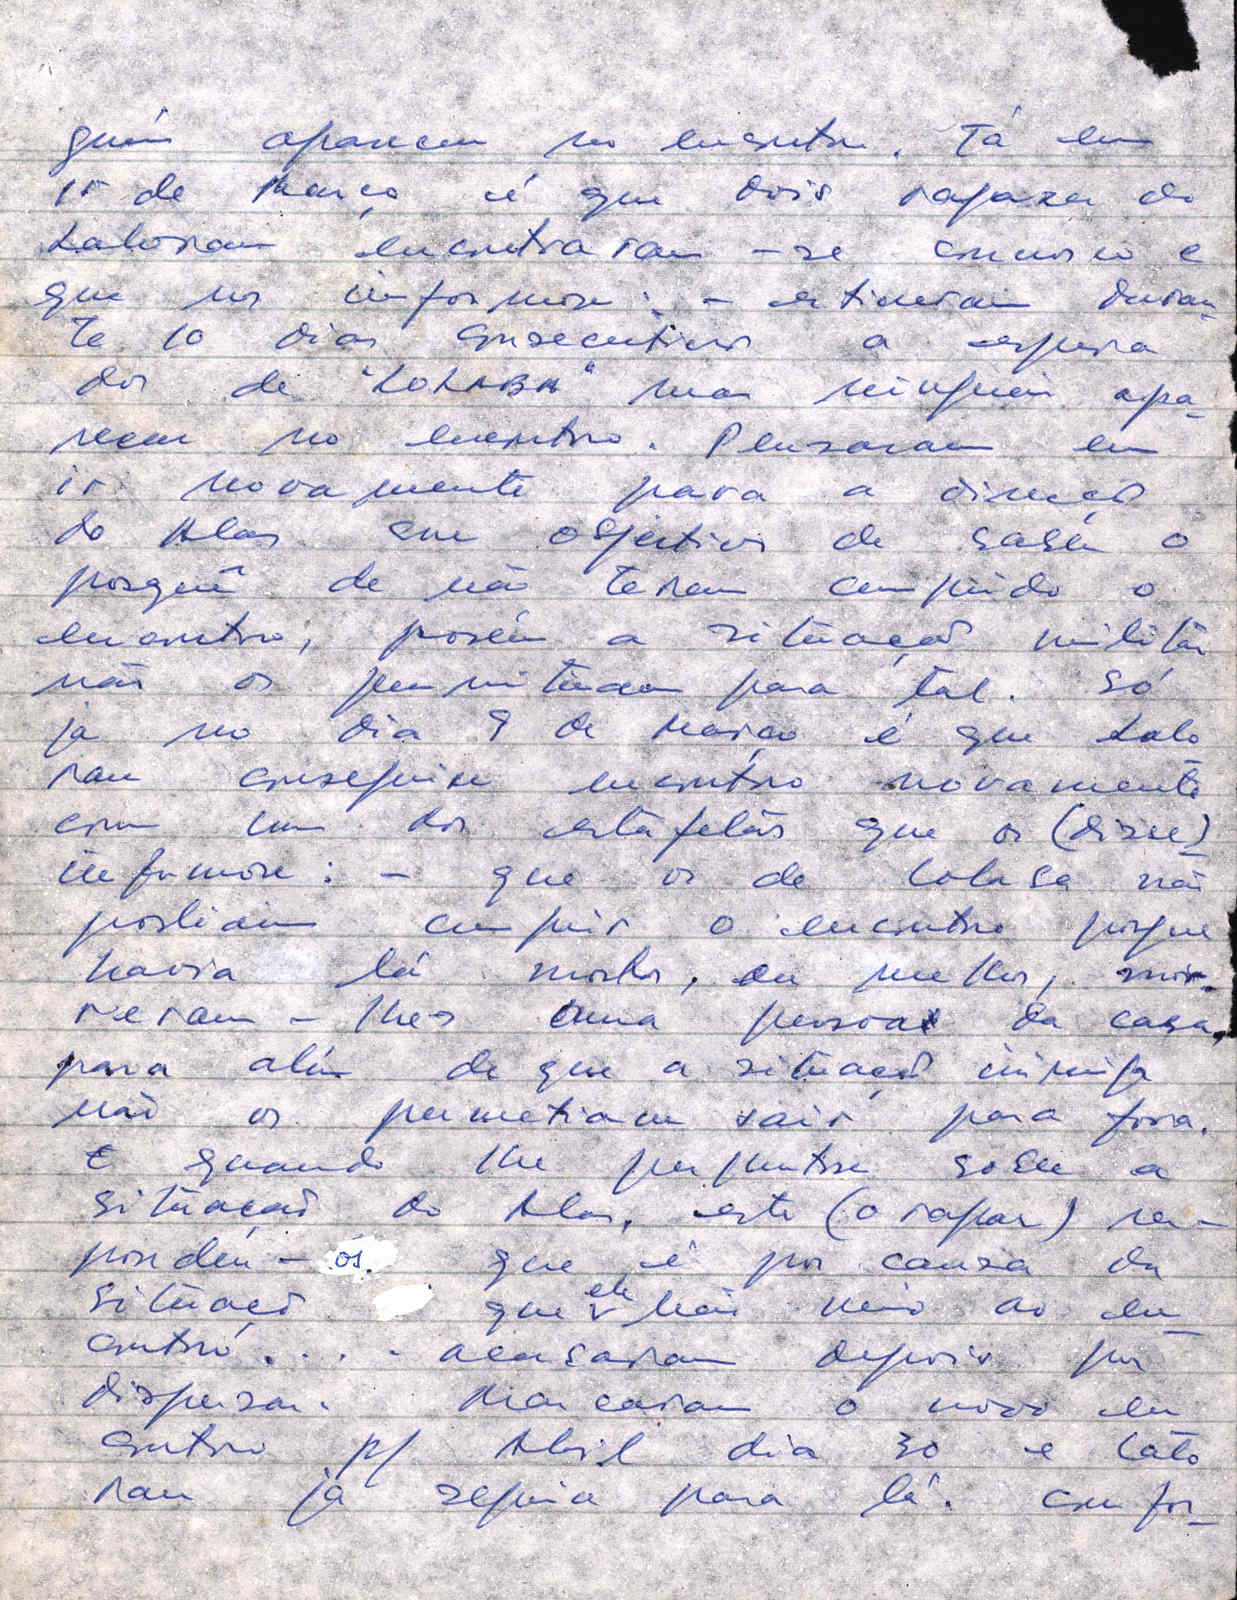 guém apareceu no encontro. Já em
15 de Março é que dois rapazes do
Laloran encontraram-se connosco e
que nos informou: - estiveram duran-
te 10 dias consecutivos a espera
dos de "LOLABA" mas ninguém apa-
receu no encontro. Pensaram em
ir novamente para a direcçã
do Alas com objectivos de saber o
porquê de não teram cumprido o
encontro, porém a situaçaõ militar
não os permitiram para tal. Só
já no dia 9 de Março é que Lalo
ran conseguiu encontro novamente
com um dos estafetas que os (disse)
informou: - que os de Lolaba não
podiam cumprir o encontro porque
havia lá mortos, ou melhor, mor-
reram-lhes uma pessoa da casa,
para além de que a situaçaõ inimiga
não os permetiam sair para fora.
E quando lhe perguntou sobre a
situaçaõ do Alas, este (o rapaz) res-
pondeu-os. que é por causa da
situaçaõ que ele não veio ao en-
contro.... acabaram depois por
dispersar. Marcaram o novo en
contro p/ Abril dia 30 e Lalo
ran já seguia para lá. confor-